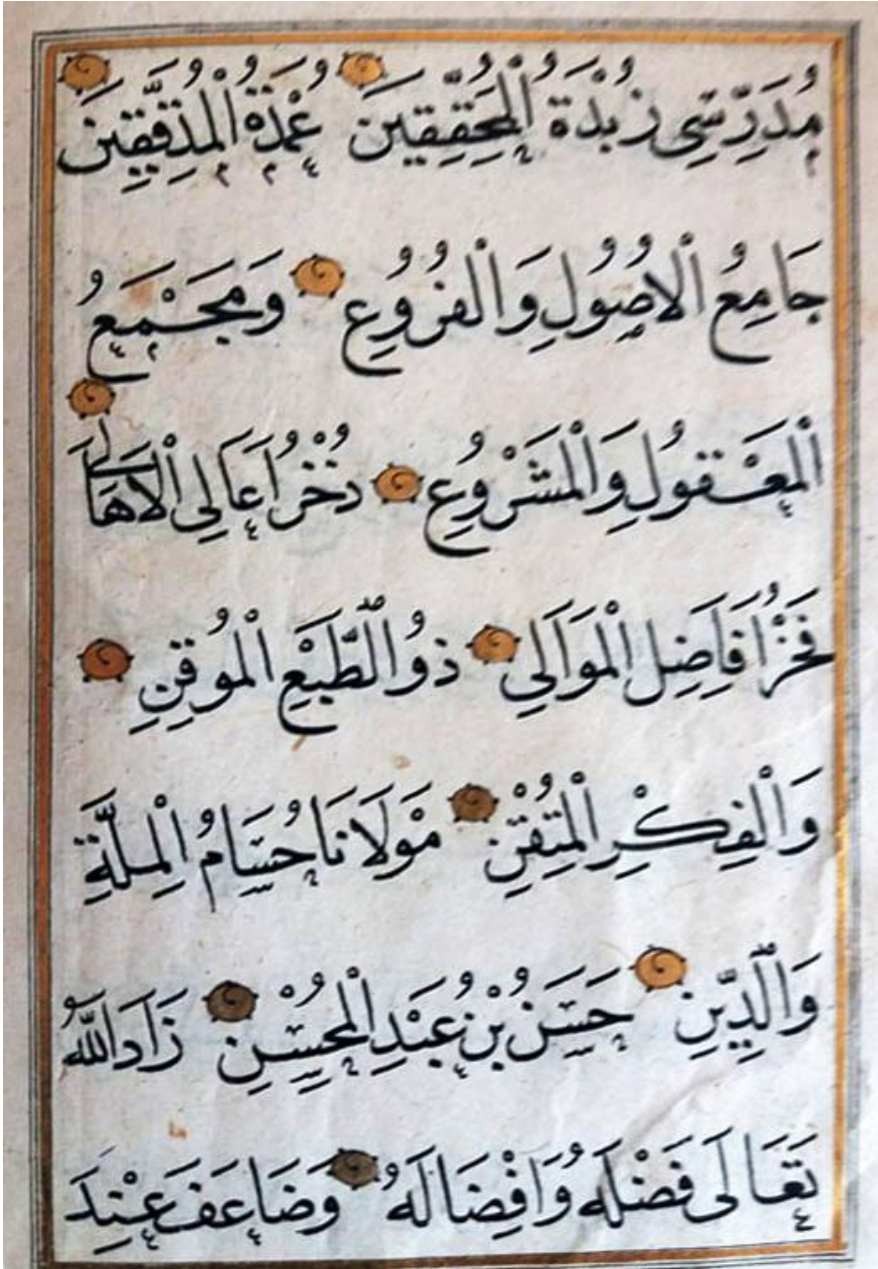 مُدَرِّسِى زُبْدَةُ الْمُحَقِّقِينَ عُمْدَةُ الْمُدَقِّقِينَ
جَامِعُ الْاُصُولِ وَالْفُرُوعِ وَمَجْمَعُ
الْمَعْقُولِ وَالْمَشْرُوعِ ذُخْرُ اَعَالِى الْاَهَالِى
فَخْرُ اَفَاضِلِ الْمَوَالِى ذُو الطَّبْعِ الْمُوقِنِ
وَالْفِكْرِ الْمُتْقِنِ مَوْلَانَا حُسَامُ الْمِلَّةِ
وَالدِّينِ حَسَنُ بْنُ عَبْدِ الْمُحْسِنِ زَادَ اللّٰهُ
تَعَالَى فَضْلَهُ وَاَفْضَالَهُ وَضَاعَفَ عِنْدَ